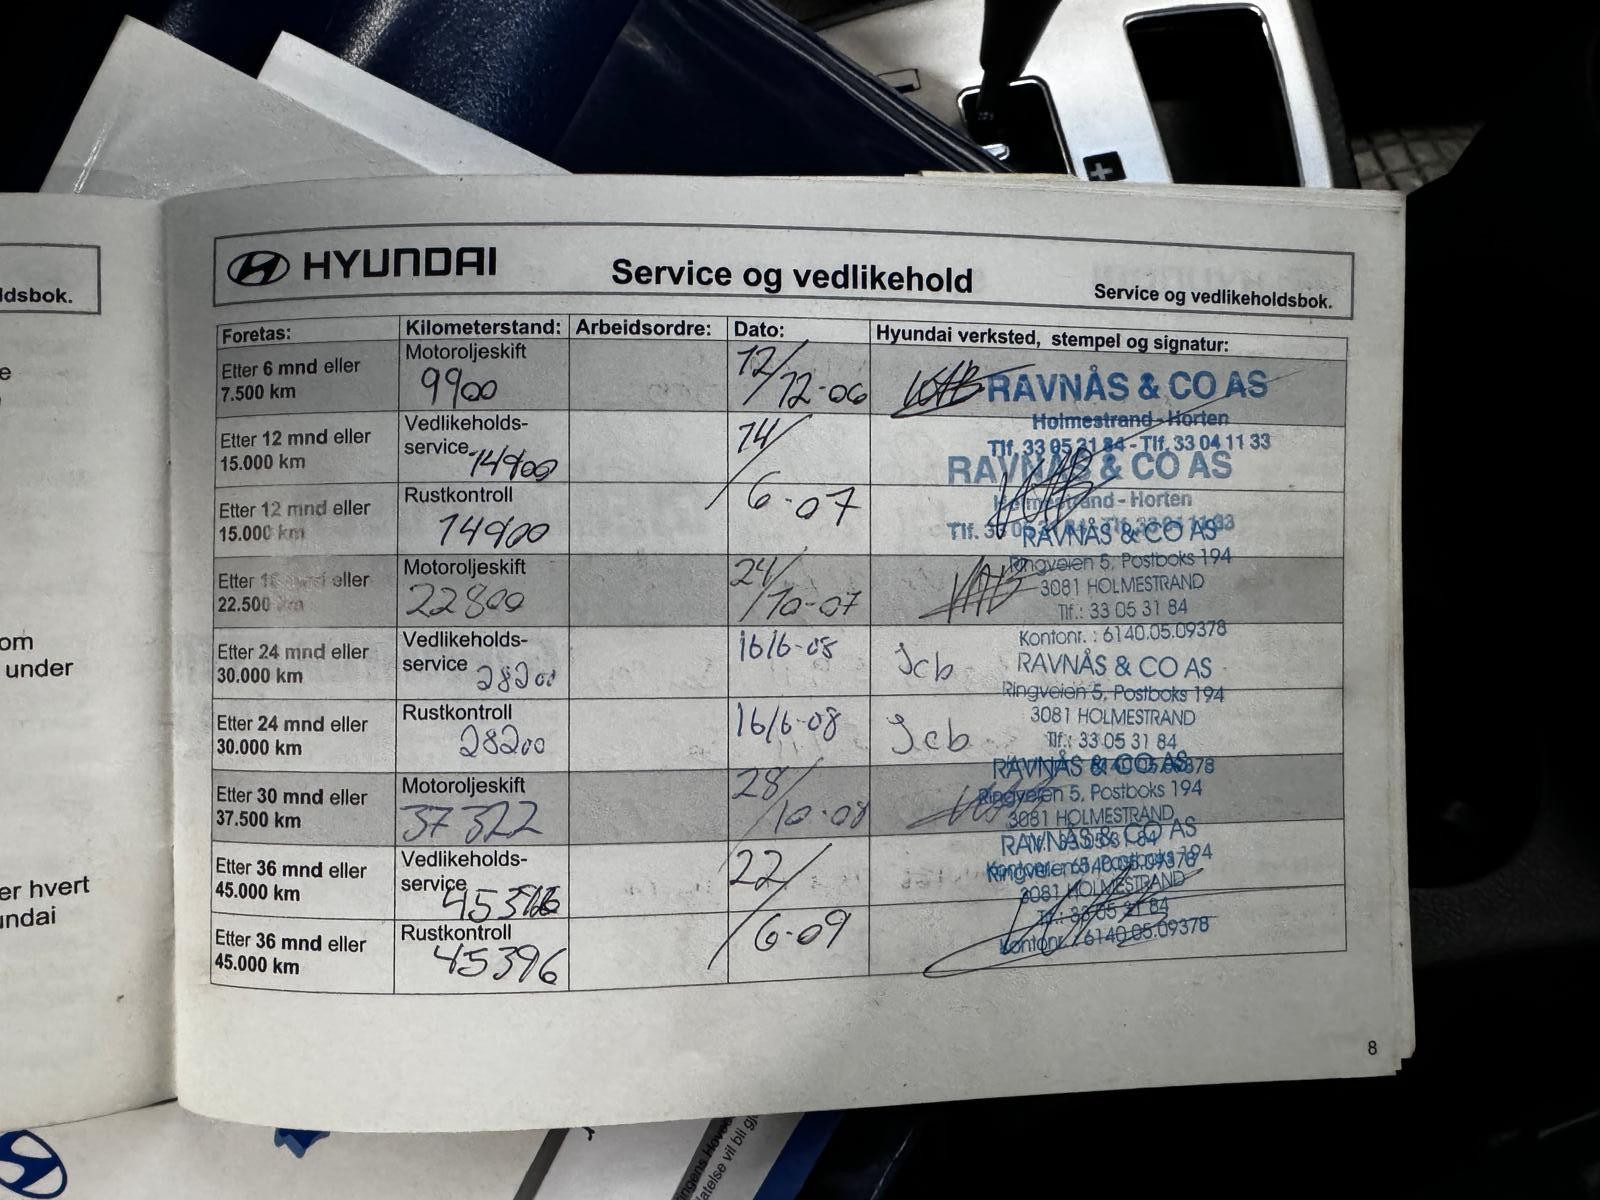 ldsbok.
e
om
under
er hvert
undai
HYUNDAI
Service og vedlikehold
Service og vedlikeholdsbok.
Foretas: Kilometerstand: Arbeidsordre: Dato: Hyundai verksted, stempel og signatur:
Etter 6 mnd eller
7.500 km
Motoroljeskift
9900
12/
12-06
RAVNÅS & CO AS
Holmestrand - Horten
Tlf. 33 05 31 84 - Tlf. 33 04 11 33
Etter 12 mnd eller
15.000 km
Vedlikeholds-
service 14900
14/
RAVNÅS & CO AS
Holmestrand - Horten
Etter 12 mnd eller
15.000 km
Rustkontroll
14900
6-07
Tlf. 33
RAVNÅS & CO AS
Ringveien 5, Postboks 194
3081 HOLMESTRAND
Tlf.: 33 05 31 84
Kontonr. : 6140.05.09378
Etter eller
22.500 km
Motoroljeskift
22800
24/
10-07
Etter 24 mnd eller
30.000 km
Vedlikeholds-
service 28200
16/6-08
Jcb
RAVNÅS & CO AS
Ringveien 5, Postboks 194
3081 HOLMESTRAND
Tlf.: 33 05 31 84
Etter 24 mnd eller
30.000 km
Rustkontroll
28200
16/6-08
Jcb
Etter 30 mnd eller
37.500 km
Motoroljeskift
37322
28/
10-08
RAVNÅS & CO AS
Ringveien 5, Postboks 194
3081 HOLMESTRAND
Etter 36 mnd eller
45.000 km
Vedlikeholds-
service
22/
RAVNÅS & CO AS
Ringveien 5, Postboks 194
3081 HOLMESTRAND
Tlf.: 33 05 31 84
Kontonr. : 6140.05.09378
Etter 36 mnd eller
45.000 km
Rustkontroll
45396
6-09
8